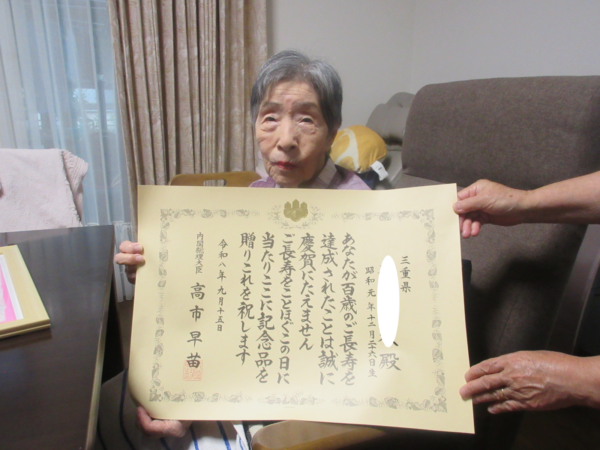 三重県
殿
昭和元年十二月二六日生
あなたが百歳のご長寿を
達成されたことは誠に
慶賀にたえません
ご長寿をことほぐこの日に
当たりここに記念品を
贈りこれを祝します
令和八年九月十五日
内閣総理大臣 高市早苗